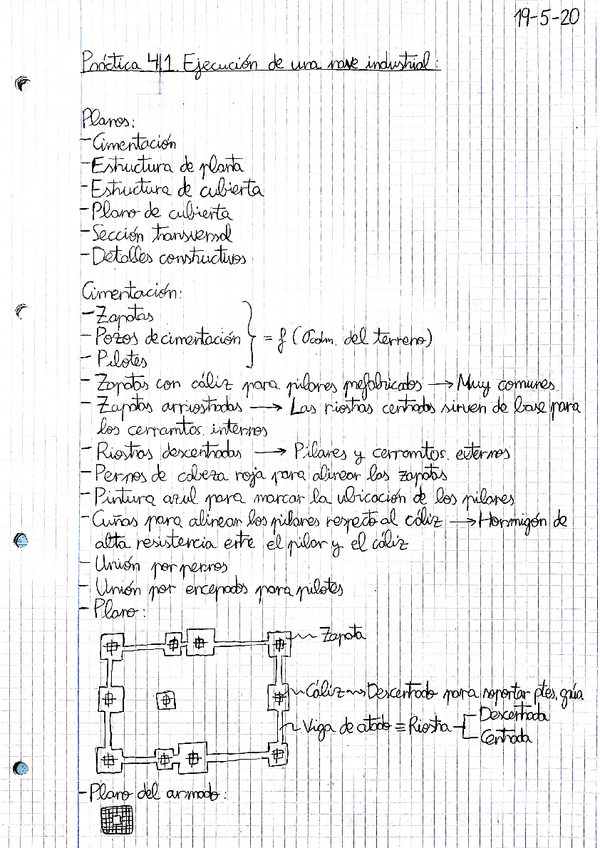 19-5-20
Práctica 4.1. Ejecución de una nave industrial:
Planos:
-Cimentación
-Estructura de planta
-Estructura de cubierta
-Plano de cubierta
-Sección transversal
-Detalles constructivos
Cimentación:
-Zapatas
-Pozos de cimentación } = f (σadm. del terreno)
-Pilotes
-Zapatas con cáliz para pilares prefabricados → Muy comunes
-Zapatas arriostradas → Las riostras centradas sirven de base para
los cerramtos. internos
-Riostras descentradas → Pilares y cerramtos. externos
-Pernos de cabeza roja para alinear las zapatas
-Pintura azul para marcar la ubicación de los pilares
-Cuñas para alinear los pilares respecto al cáliz → Hormigón de
alta resistencia entre el pilar y el cáliz
-Unión por pernos
-Unión por encepados para pilotes
-Plano:
Zapata
Cáliz → Descentrado para soportar ptes. grúa
Viga de atado ≡ Riostra
Descentrada
Centrada
-Plano del armado: